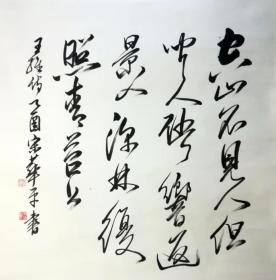 空山不见人但
闻人语響返
景入深林復
照青苔上
王維诗乙酉宋華平書